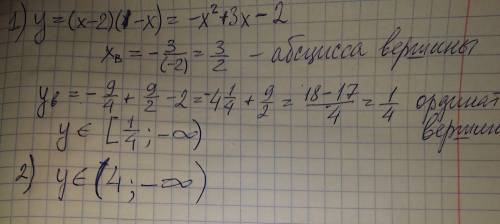 1) y=(x-2)(1-x) = -x²+3x-2
xв = -3/(-2) = 3/2 - абсцисса вершины
yв = -9/4 + 9/2 - 2 = -4 1/4 + 9/2 = (18-17)/4 = 1/4 ординат
вершин
y ∈ [1/4; -∞)
2) y ∈ (4; -∞)